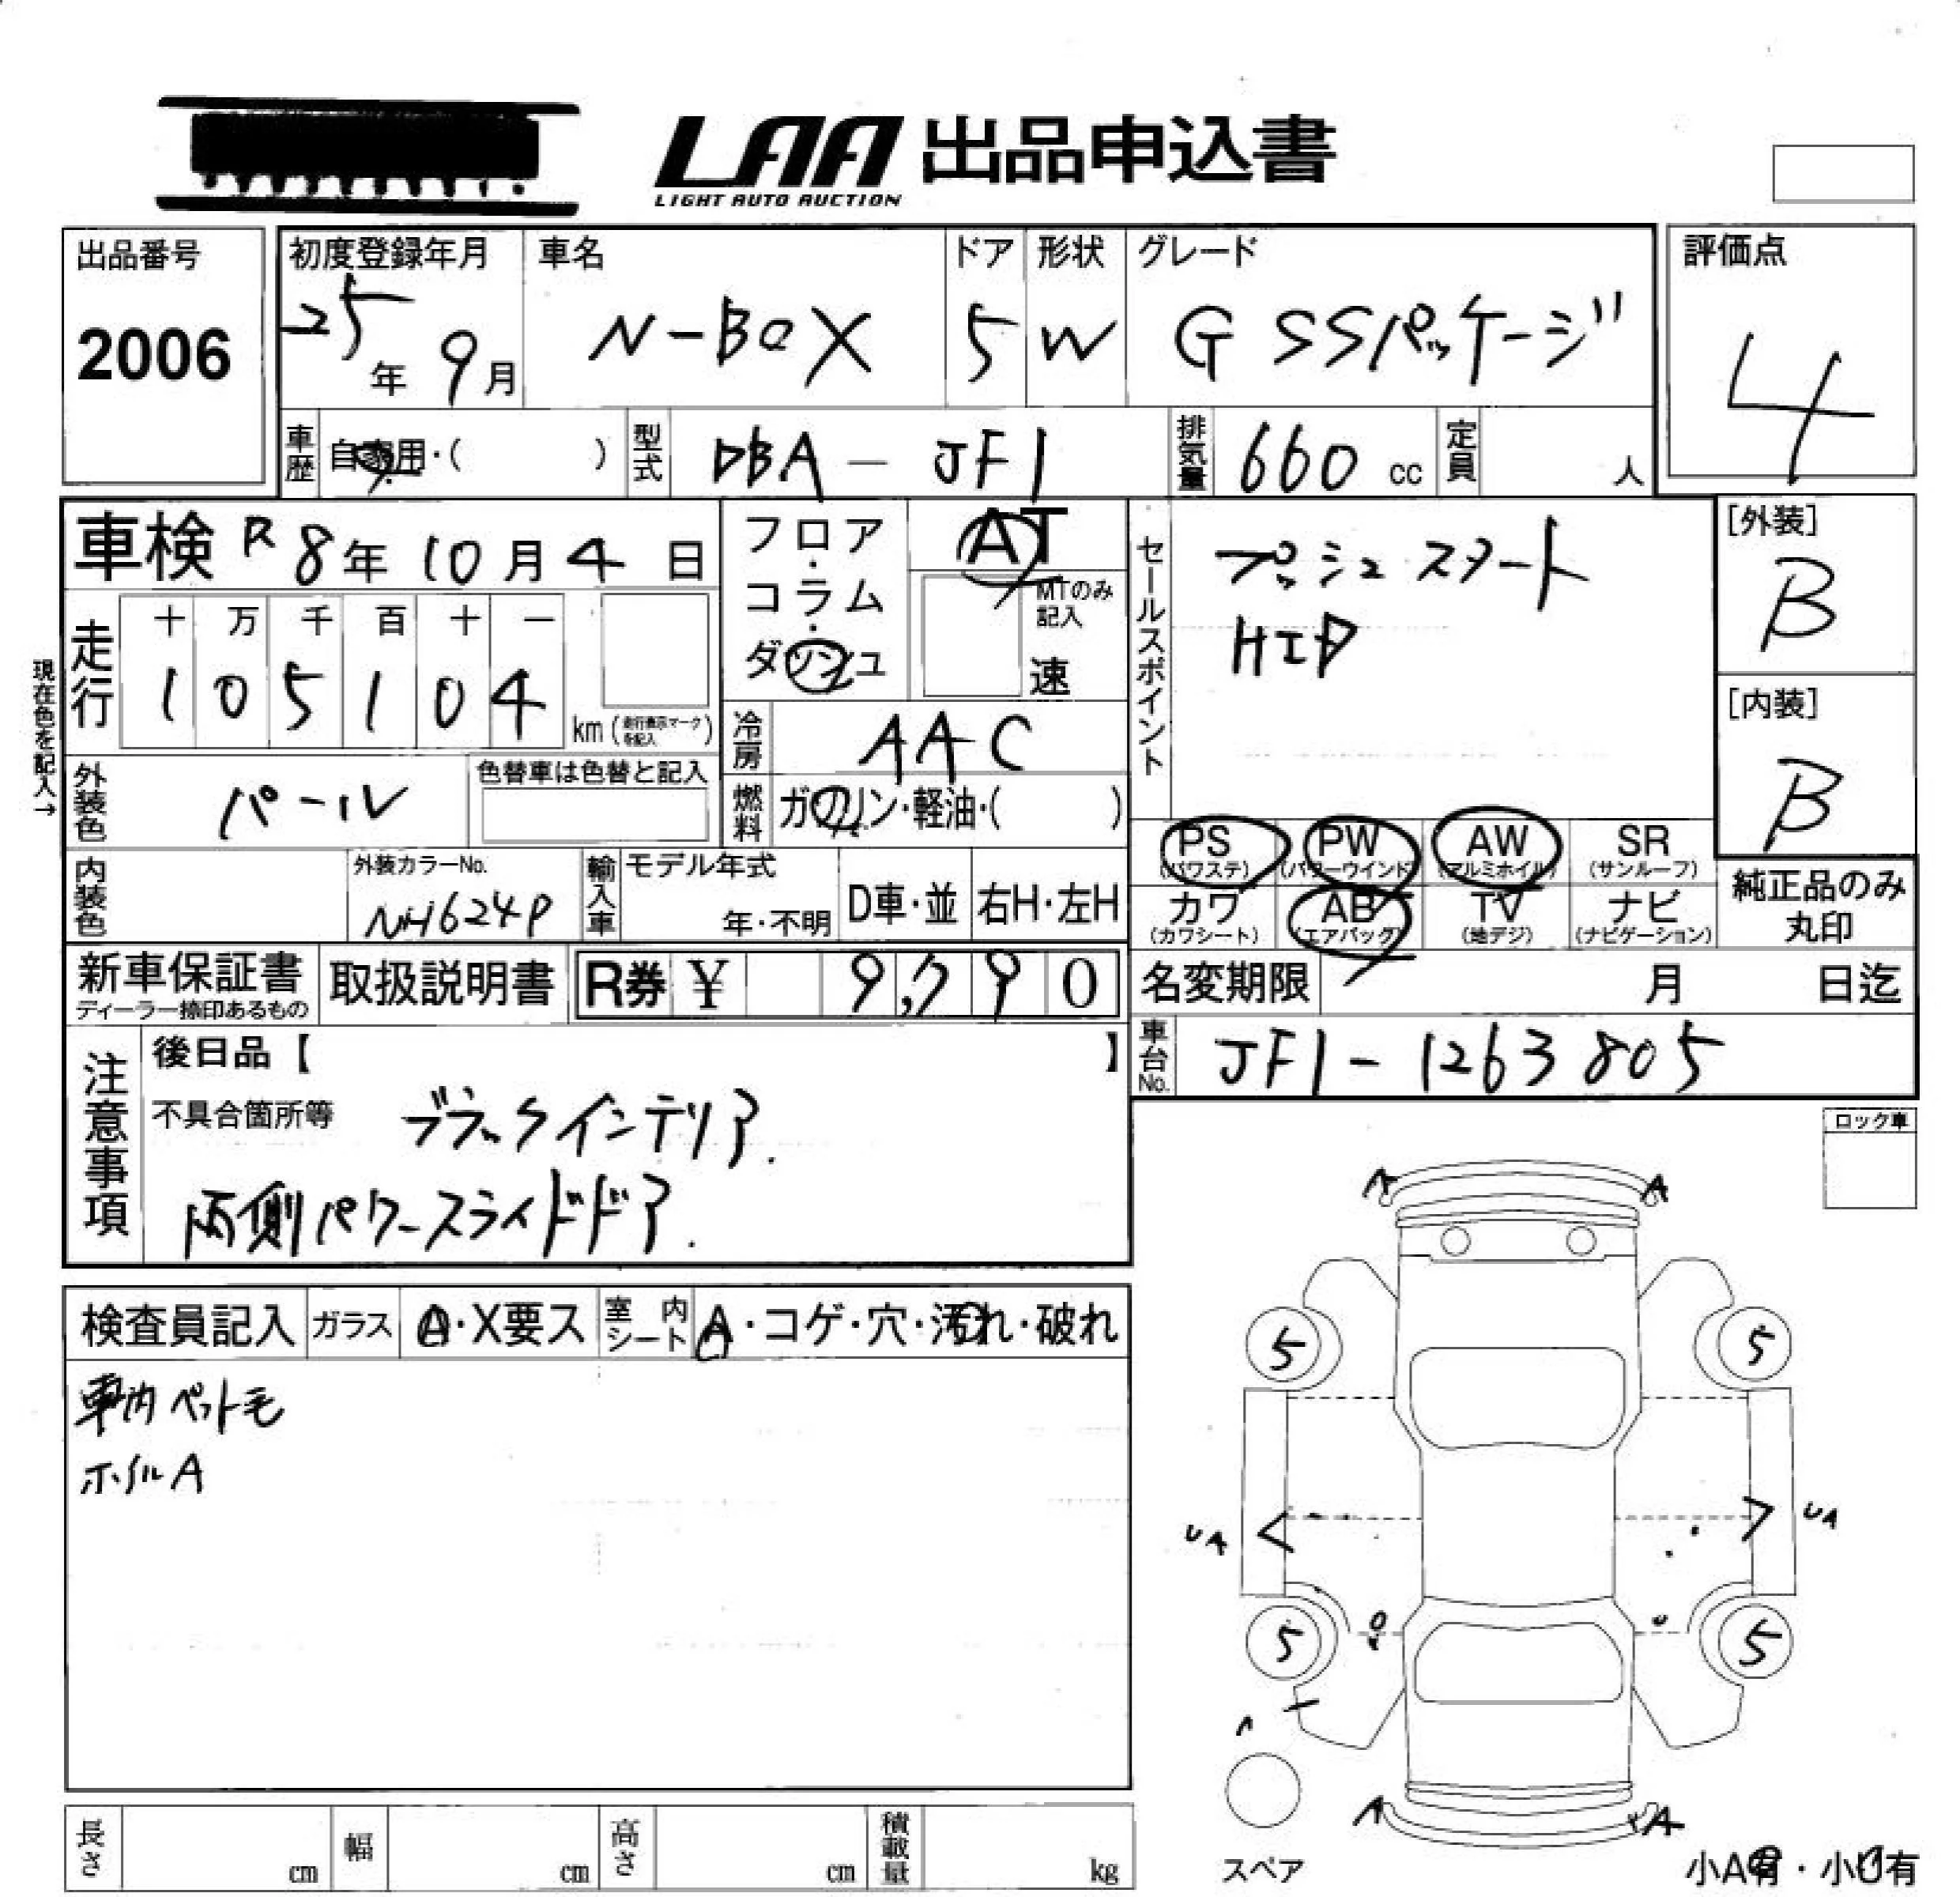 LAA 出品申込書
LIGHT AUTO AUCTION
出品番号
2006
初度登録年月
25年 9月
車名
N-BOX
ドア
5
形状
W
グレード
G SSパッケージ
評価点
4
車歴
自家用・( )
型式
DBA - JF1
排気量
660 cc
定員
人
車検 R8年 10月 4日
フロア・コラム・ダッシュ
AT
MTのみ記入
速
セールスポイント
プッシュスタート
HID
[外装]
B
[内装]
B
現在色を記入→
走行
十 万 千 百 十 一
1 0 5 1 0 4
km (走行表示マークを記入)
冷房
AAC
外装色
パール
色替車は色替と記入
燃料
ガソリン・軽油・( )
PS (パワステ)
PW (パワーウインド)
AW (アルミホイル)
SR (サンルーフ)
カワ (カワシート)
AB (エアバック)
TV (地デジ)
ナビ (ナビゲーション)
純正品のみ丸印
内装色
外装カラーNo.
NH624P
輸入車
モデル年式
年・不明
D車・並
右H・左H
新車保証書
ディーラー捺印あるもの
取扱説明書
R券 ¥ 9,790
名変期限 月 日迄
車台No.
JF1-1263805
注意事項
後日品【 】
不具合箇所等 ブラックインテリア.
両側パワースライドドア.
ロック車
検査員記入
ガラス
A・X要ス
室内シート
A・コゲ・穴・汚れ・破れ
車内ペット毛
ホイルA
A A
5 5
UA UA
5 5
A
A A
スペア
小A有・小U有
長さ cm
幅 cm
高さ cm
積載量 kg